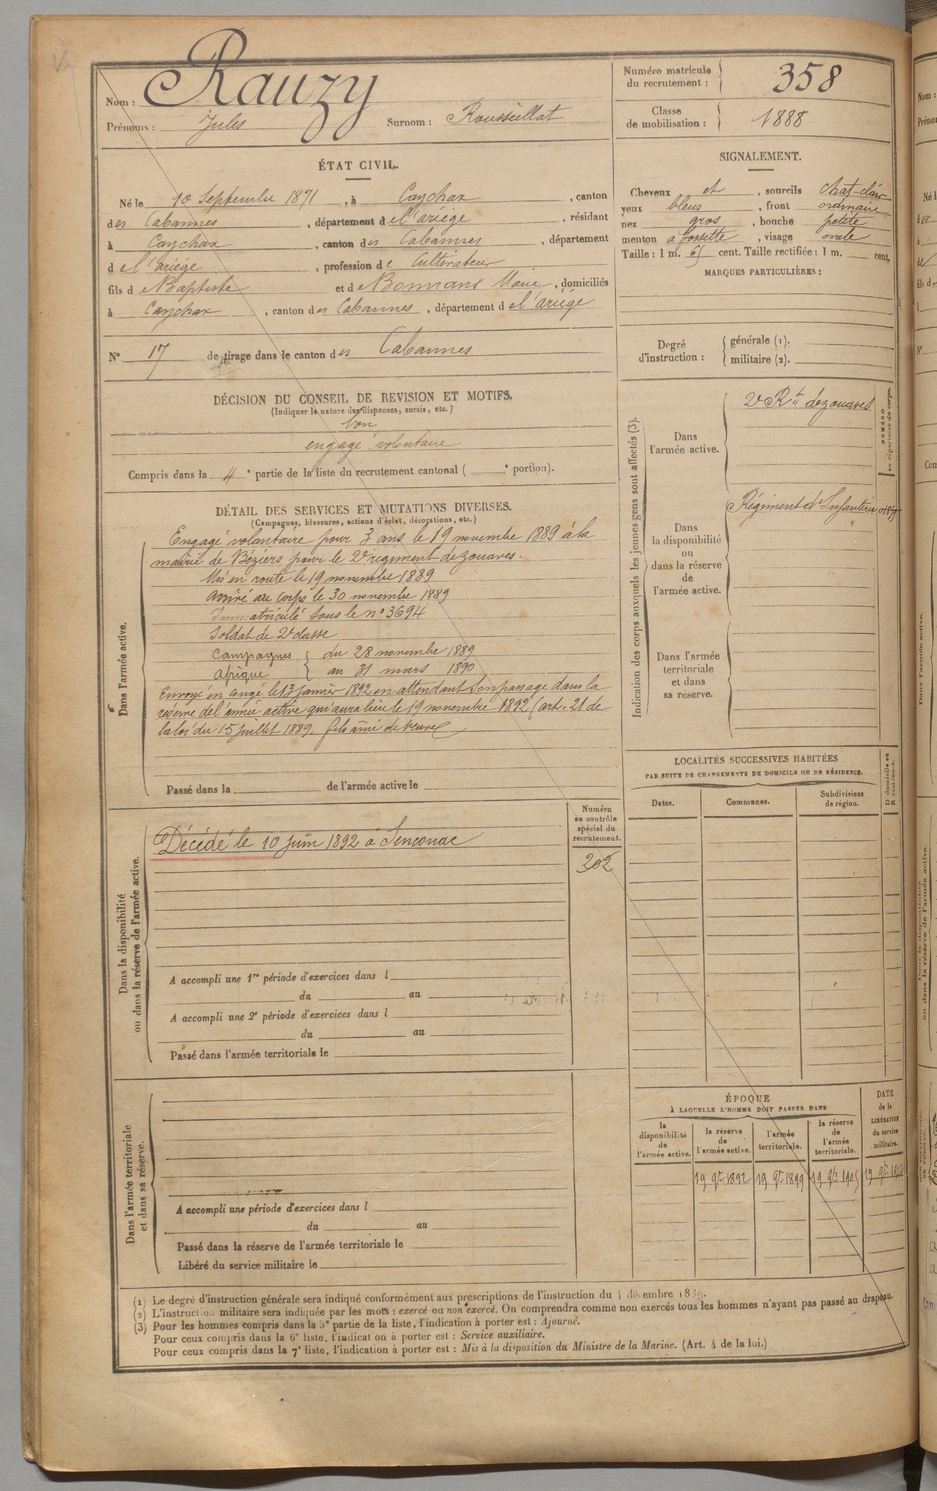 Nom : Rauzy
Prénoms : Jules Surnom : Roussillat
Numéro matricule du recrutement : 358
Classe de mobilisation : 1888
ÉTAT CIVIL.
Né le 10 Septembre 1871, à Caychax, canton
des Cabannes, département de l'ariège, résidant
à Caychax, canton des Cabannes, département
de l'ariège, profession de Cultivateur
fils de Baptiste et de Bonnans Marie, domiciliés
à Caychax, canton des Cabannes, département de l'ariège
N° 17 de tirage dans le canton des Cabannes
SIGNALEMENT.
Cheveux et, sourcils chat-clair
yeux bleus, front ordinaire
nez gros, bouche petite
menton à fossette, visage ovale
Taille : 1 m. 65 cent. Taille rectifiée : 1 m. cent.
MARQUES PARTICULIÈRES :
Degré d'instruction : générale (1).
militaire (2).
DÉCISION DU CONSEIL DE REVISION ET MOTIFS.
(Indiquer la nature des dispenses, sursis, etc.)
bon
engagé volontaire
Compris dans la 4e partie de la liste du recrutement cantonal ( e portion).
DÉTAIL DES SERVICES ET MUTATIONS DIVERSES.
(Campagnes, blessures, actions d'éclat, décorations, etc.)
Dans l'armée active.
Engagé volontaire pour 3 ans le 19 novembre 1889 à la
mairie de Béziers pour le 2e régiment de zouaves.
Mis en route le 19 novembre 1889
Arrivé au corps le 30 novembre 1889
Immatriculé sous le n° 3694
Soldat de 2e classe
Campagnes du 28 novembre 1889
Afrique au 31 mars 1890
Envoyé en congé le 13 janvier 1892 en attendant son passage dans la
réserve de l'armée active qui aura lieu le 19 novembre 1892 (art. 21 de
la loi du 15 juillet 1889. fils aîné de veuve)
Passé dans la de l'armée active le
Indication des corps auxquels les jeunes gens sont affectés (3).
Dans l'armée active. 2e Rt de zouaves
Dans la disponibilité ou dans la réserve de l'armée active. Régiment d'Infanterie
Dans l'armée territoriale et dans sa réserve.
NUMÉRO au répertoire du corps.
LOCALITÉS SUCCESSIVES HABITÉES
PAR SUITE DE CHANGEMENTS DE DOMICILE OU DE RÉSIDENCE.
Dates. Communes. Subdivisions de région. D domicile ou R résidence.
Dans la disponibilité ou dans la réserve de l'armée active.
Numéro au contrôle spécial du recrutement.
Décédé le 10 juin 1892 à Senconac
202
A accompli une 1re période d'exercices dans l
du au
A accompli une 2e période d'exercices dans l
du au
Passé dans l'armée territoriale le
ÉPOQUE
À LAQUELLE L'HOMME DOIT PASSER DANS
la disponibilité de l'armée active.
la réserve de l'armée active.
l'armée territoriale.
la réserve de l'armée territoriale.
DATE de la LIBÉRATION du service militaire.
19 9bre 1892 19 9bre 1899 19 9bre 1905
Dans l'armée territoriale et dans sa réserve.
A accompli une période d'exercices dans l
du au
Passé dans la réserve de l'armée territoriale le
Libéré du service militaire le
(1) Le degré d'instruction générale sera indiqué conformément aux prescriptions de l'instruction du 4 décembre 1889.
(2) L'instruction militaire sera indiquée par les mots : exercé ou non exercé. On comprendra comme non exercés tous les hommes n'ayant pas passé au drapeau.
(3) Pour les hommes compris dans la 5e partie de la liste, l'indication à porter est : Ajourné.
Pour ceux compris dans la 6e liste, l'indication à porter est : Service auxiliaire.
Pour ceux compris dans la 7e liste, l'indication à porter est : Mis à la disposition du Ministre de la Marine. (Art. 4 de la loi.)